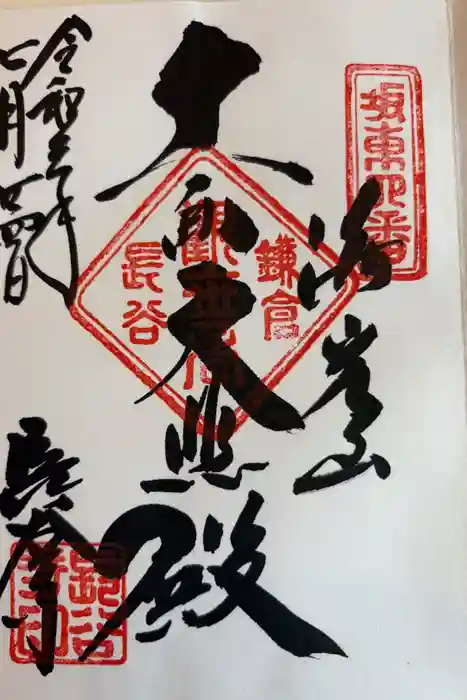 坂東四番
海光山
十一面大悲殿
鎌倉
観世音
長谷
令和三年
七月廿四日
長谷寺
長谷寺印